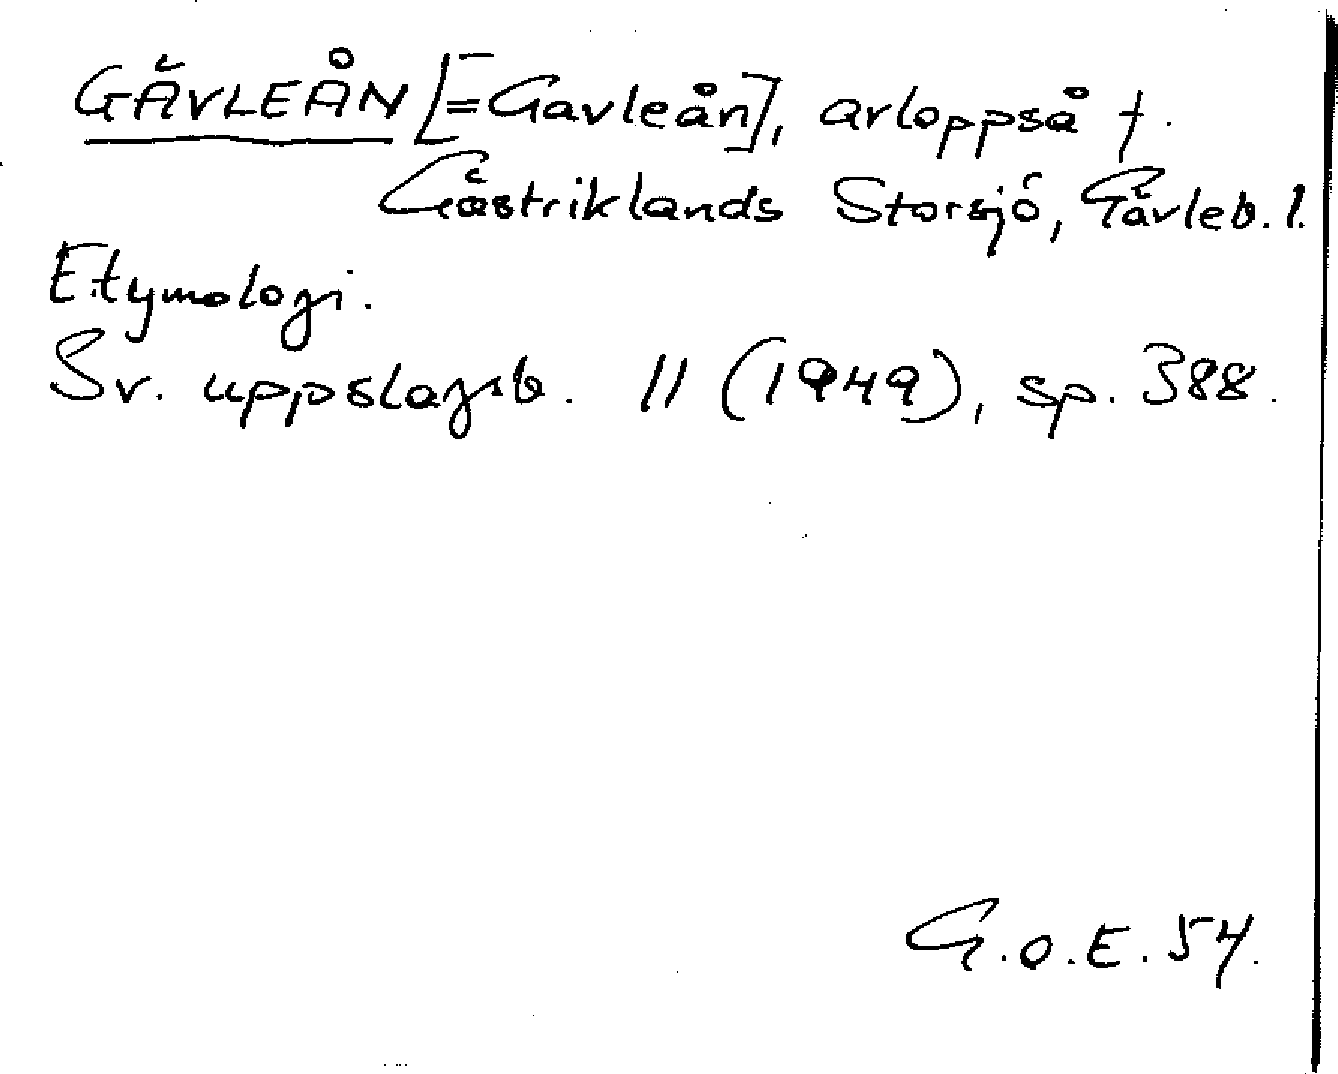 GÄVLEÅN [=Gavleån], avloppså f.
Gästriklands Storsjö, Gävleb. l.
Etymologi.
Sv. uppslagsb. 11 (1949), sp. 388.
G.O.E. 54.